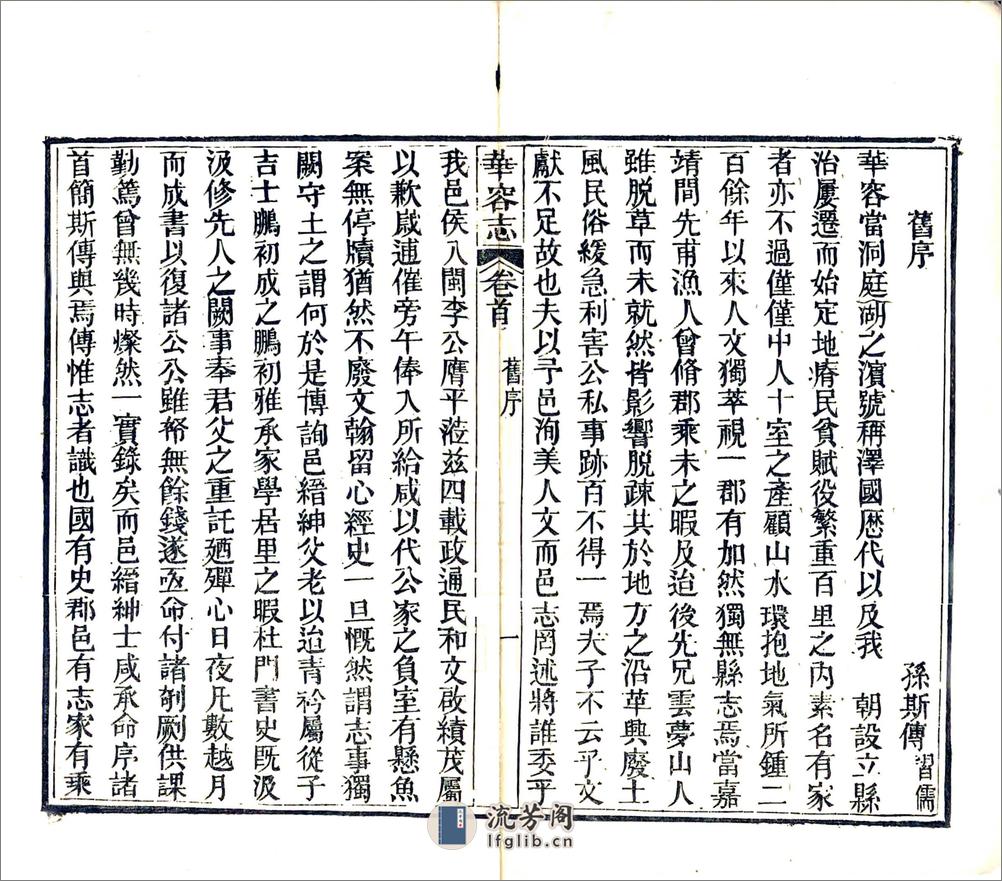 舊序
孫斯傳 習儒
華容當洞庭湖之濱號稱澤國歷代以及我 朝設立縣
治屢遷而始定地瘠民貧賦役繁重百里之內素名有家
者亦不過僅僅中人十室之產顧山水環抱地氣所鍾二
百餘年以來人文獨萃視一郡有加然獨無縣志焉當嘉
靖間先甫漁人曾脩郡乘未之暇及迨後先兄雲夢山人
雖脫草而未就然皆影響脫疎其於地方之沿革興廢土
風民俗緩急利害公私事跡百不得一焉夫子不云乎文
獻不足故也夫以予邑洵美人文而邑志罔述將誰委乎
華容志 卷首 舊序 一
我邑侯八閩李公膺平蒞茲四載政通民和文啟績茂屬
以歉歲逋催旁午俸入所給咸以代公家之負室有懸魚
案無停牘猶然不廢文翰留心經史一旦慨然謂志事獨
闕守土之謂何於是博詢邑縉紳父老以迨青衿屬從子
吉士鵬初成之鵬初雅承家學居里之暇杜門書史既汲
汲修先人之闕事奉君父之重託廼殫心日夜凡數越月
而成書以復諸公公雖帑無餘錢遂亟命付諸剞劂供課
勤篤曾無幾時燦然一實錄矣而邑縉紳士咸承命序諸
首簡斯傳與焉傳惟志者識也國有史郡邑有志家有乘
流芳阁
lfglib.cn